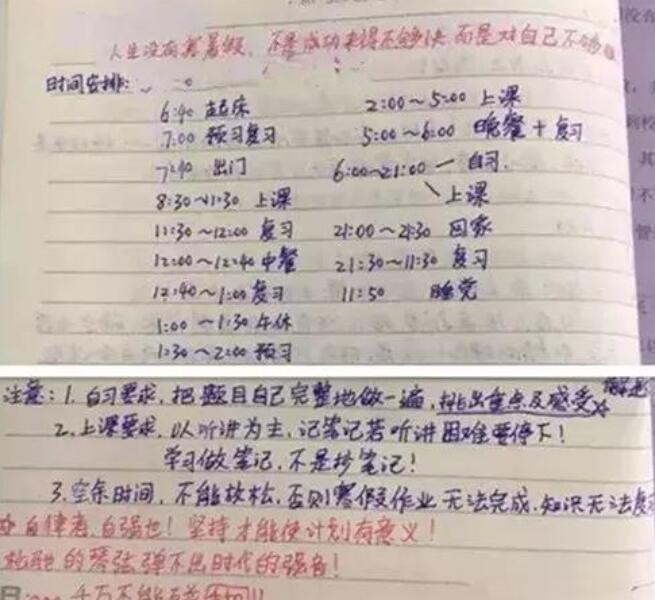 人生没有寒暑假, 不是成功来得不够快, 而是对自己不够
时间安排:
6:40 起床
7:00 预习复习
7:40 出门
8:30~11:30 上课
11:30~12:00 复习
12:00~12:40 中餐
12:40~1:00 复习
1:00~1:30 午休
1:30~2:00 预习
2:00~5:00 上课
5:00~6:00 晚餐+复习
6:00~21:00 自习
上课
21:00~21:30 回家
21:30~11:30 复习
11:50 睡觉
注意: 1. 自习要求, 把题目自己完整地做一遍, 挑出重点及感受☆
2. 上课要求, 以听讲为主, 记笔记若听讲困难要停下!
学习做笔记, 不是抄笔记!
3. 空余时间, 不能放松, 否则寒假作业无法完成, 知识无法复
自律者, 自强也! 坚持才能使计划有意义!
松弛的琴弦弹不出时代的强音!
千万不能